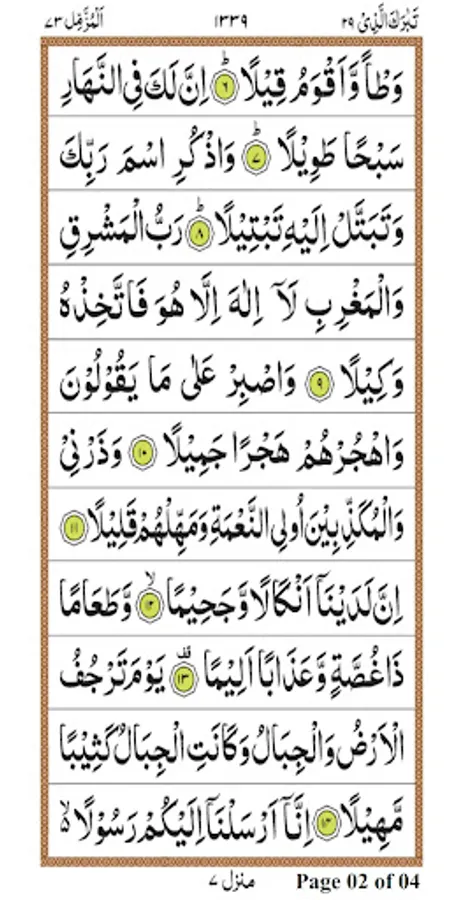 تَبٰرَكَ الَّذِیْ ٢٩ ١٣٣٩ اَلْمُزَّمِّل ٧٣
وَطْاً وَّاَقْوَمُ قِیْلًا ؕ‏ ۝٦ اِنَّ لَكَ فِی النَّهَارِ
سَبْحًا طَوِیْلًا ؕ‏ ۝٧ وَاذْكُرِ اسْمَ رَبِّكَ
وَتَبَتَّلْ اِلَیْهِ تَبْتِیْلًا ؕ‏ ۝٨ رَبُّ الْمَشْرِقِ
وَالْمَغْرِبِ لَاۤ اِلٰهَ اِلَّا هُوَ فَاتَّخِذْهُ
وَكِیْلًا ۝٩ وَاصْبِرْ عَلٰی مَا یَقُوْلُوْنَ
وَاهْجُرْهُمْ هَجْرًا جَمِیْلًا ۝١٠ وَذَرْنِیْ
وَالْمُكَذِّبِیْنَ اُولِی النَّعْمَةِ وَمَهِّلْهُمْ قَلِیْلًا ۝١١
اِنَّ لَدَیْنَاۤ اَنْكَالًا وَّجَحِیْمًا ۙ‏ ۝١٢ وَّطَعَامًا
ذَا غُصَّةٍ وَّعَذَابًا اَلِیْمًا ۗ‏ ۝١٣ یَوْمَ تَرْجُفُ
الْاَرْضُ وَالْجِبَالُ وَكَانَتِ الْجِبَالُ كَثِیْبًا
مَّهِیْلًا ۝١٤ اِنَّاۤ اَرْسَلْنَاۤ اِلَیْكُمْ رَسُوْلًا ۙ۬
منزل ٧ Page 02 of 04